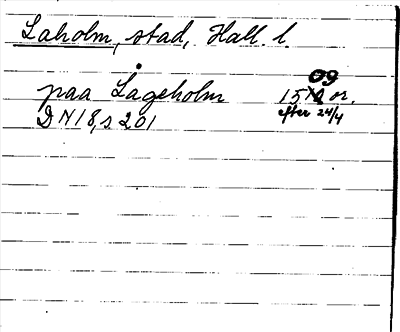 Laholm, stad, Hall. l.
paa Lageholm 1509 or.
DN 18, s 201 efter 24/4